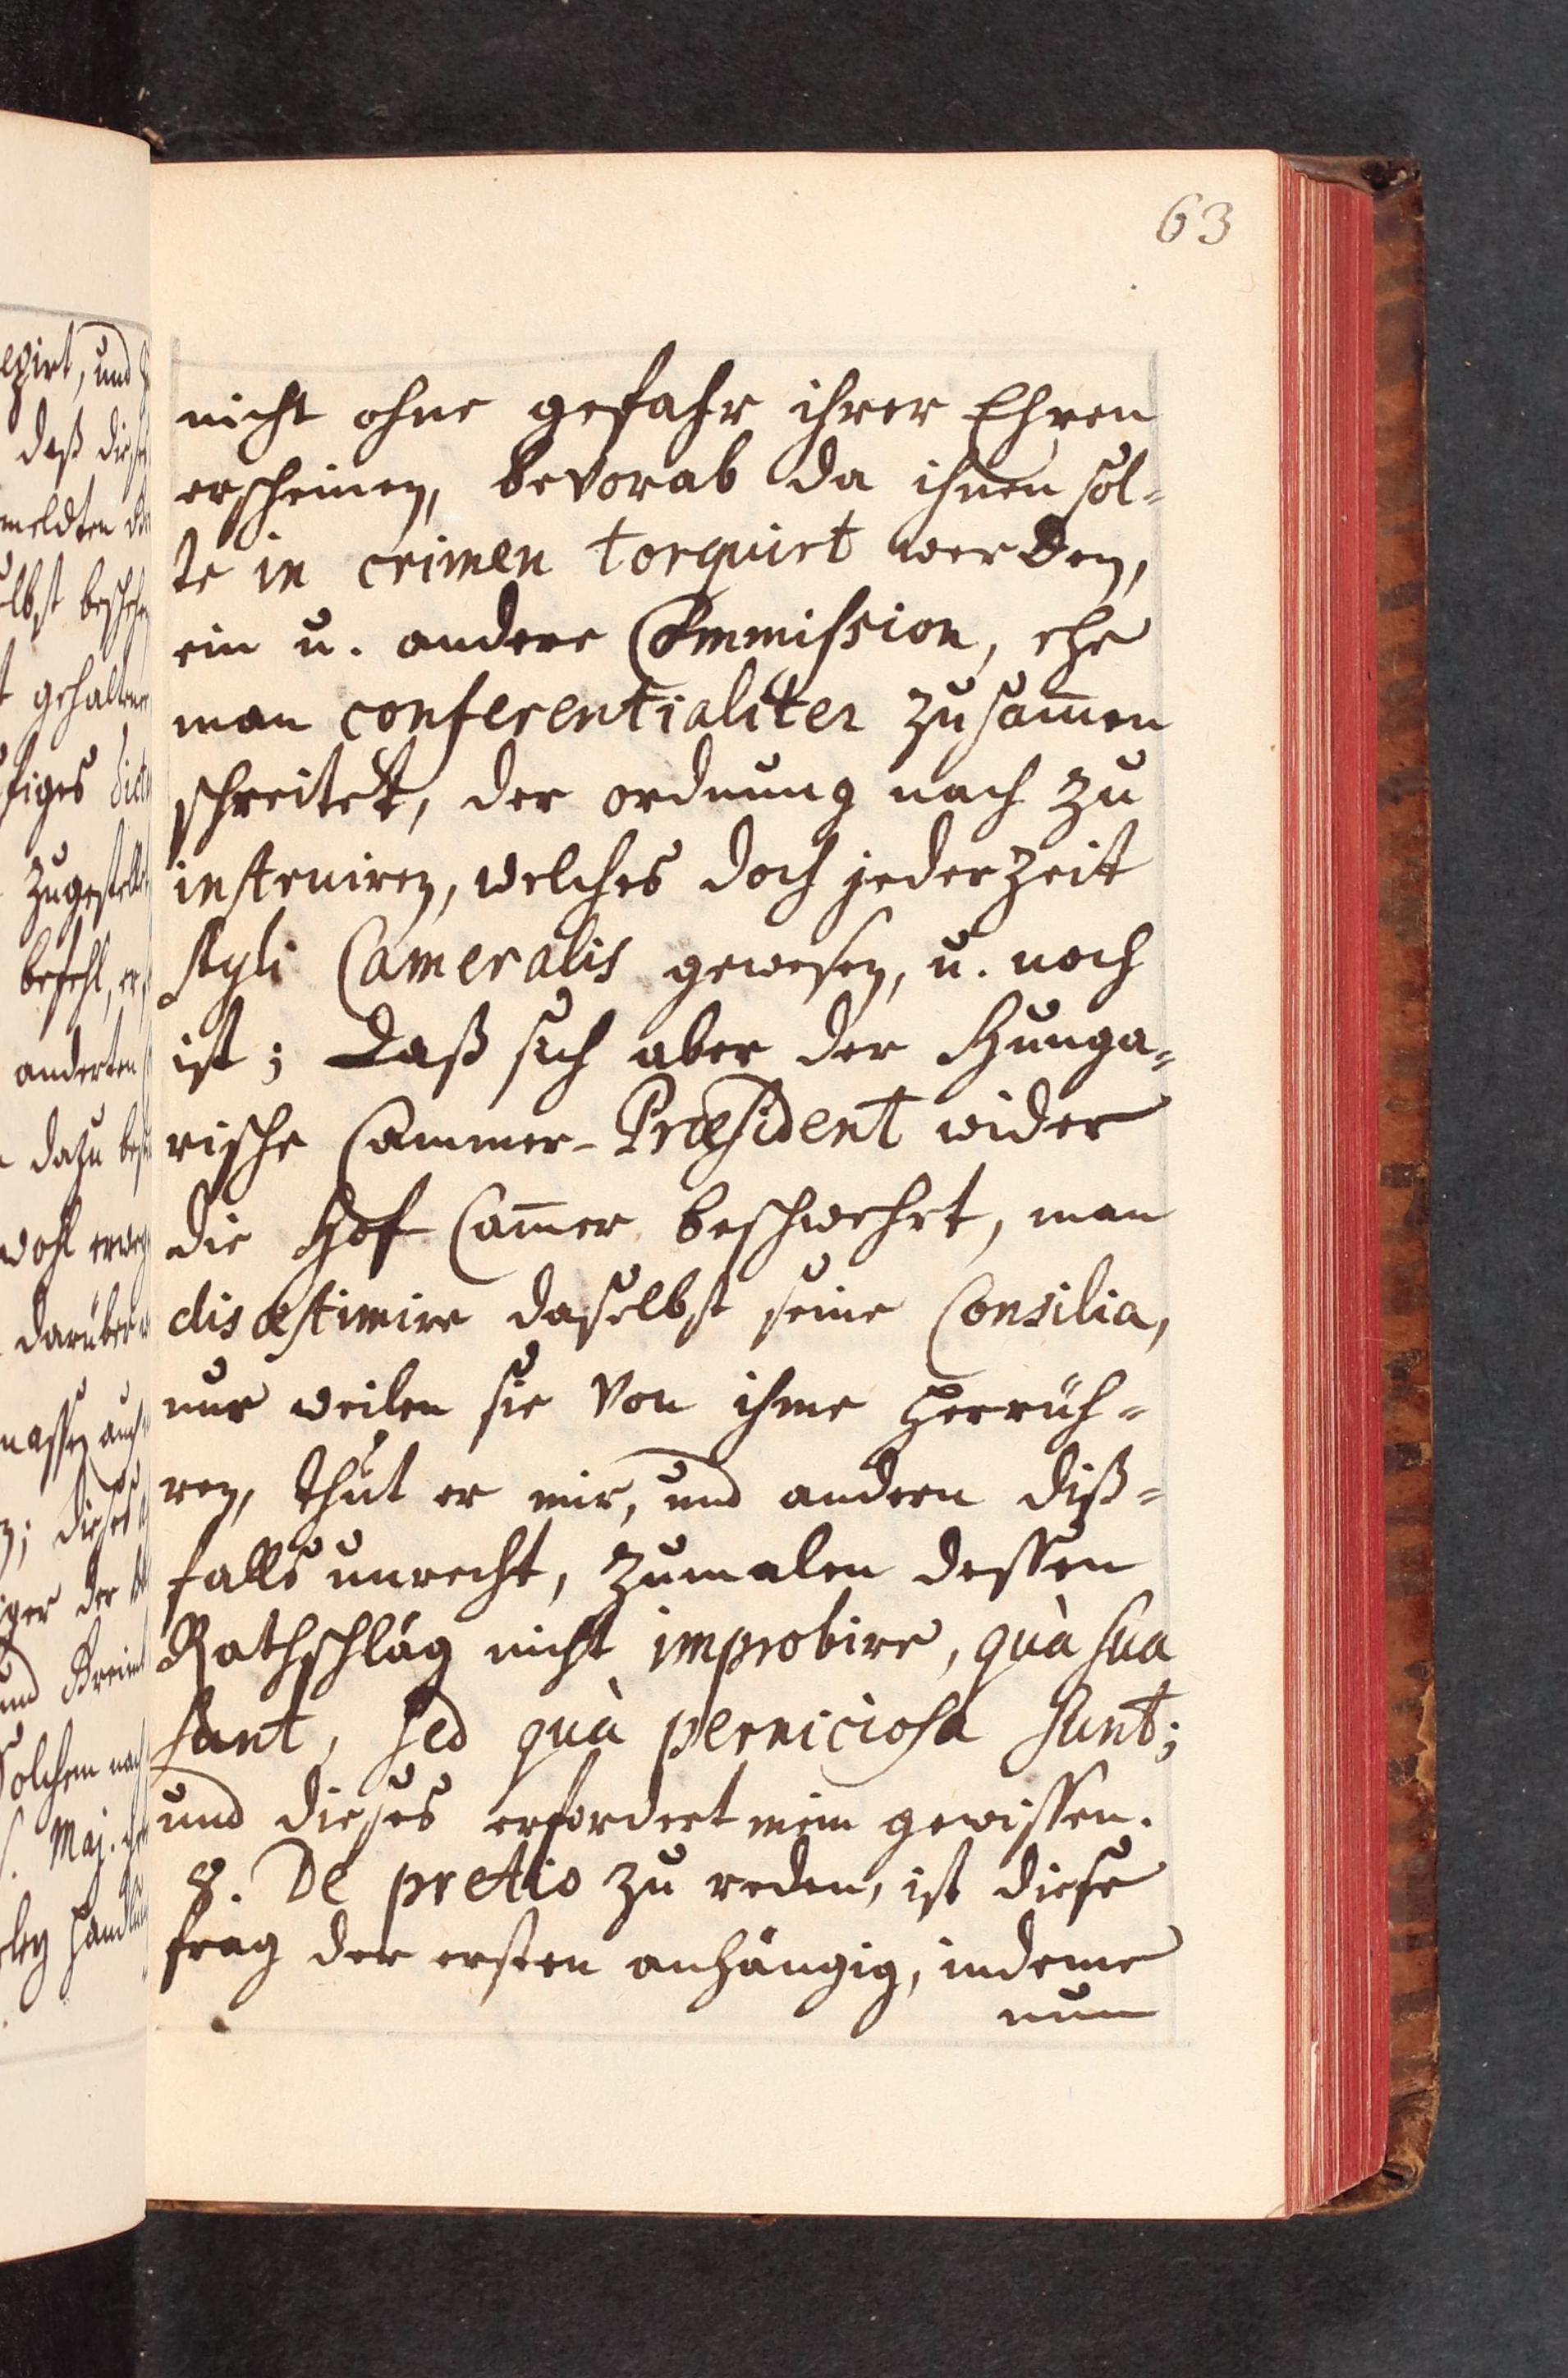 63
nicht ohne gefahr ihrer Ehren
erscheinen, bevorab da ihnen sol=
te in crimen torquirt werden,
ein u. andere Commission, ehe
man conferentialiter zusam̄en
schreitet, der ordnung nach zu
instruiren, welches doch jederzeit
styli Cameralis gewesen, u. noch
ist; daß sich aber der Hunga=
rische Cammer-Præsident wider
die Hof Cam̄er beschwehrt, man
disæstimire daselbst seine Consilia,
nur weilen sie von ihme herrüh=
ren, thut er mir, und andern diß=
falls unrecht, zumalen dessen
Rathschläg nicht improbire, quà sua
sunt, sed quà perniciosa sunt;
und dieses erfordert mein gewissen.
8. De pretio zu reden, ist diese
frag der ersten anhängig, indeme
nun